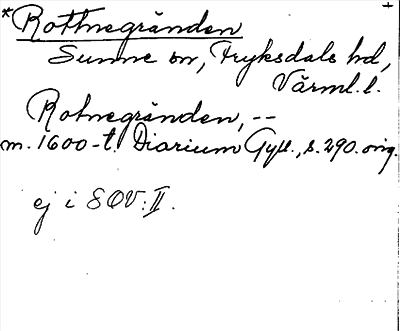 *Rottnegränden
Sunne sn, Fryksdals hd,
Värml. l.
Rotnegränden, --
m. 1600-t. Diarium Gyll., s. 290. orig.
ej i SOV: II.